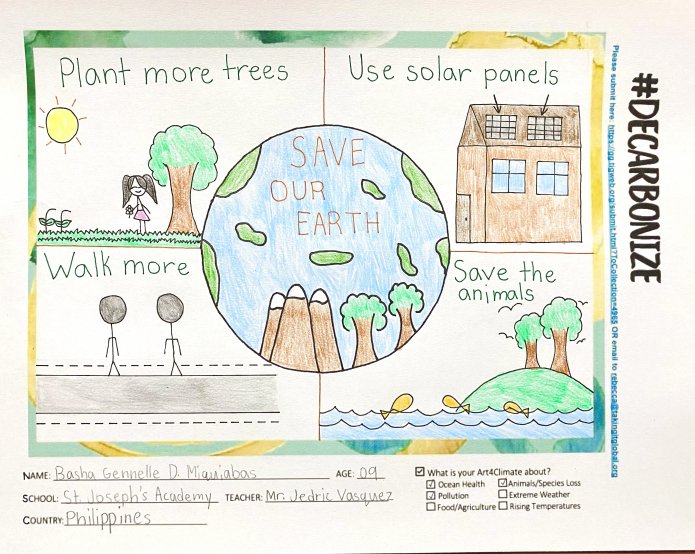 Plant more trees
Use solar panels
SAVE
OUR
EARTH
Walk more
Save the
animals
#DECARBONIZE
Please submit here: https://gg.tigweb.org/submit.html?ToCollection=4965 OR email to rebecca@takingitglobal.org
NAME: Basha Gennelle D. Miquiabas AGE: 09
SCHOOL: St. Joseph's Academy TEACHER: Mr. Jedric Vasquez
COUNTRY: Philippines
What is your Art4Climate about?
Ocean Health Animals/Species Loss
Pollution Extreme Weather
Food/Agriculture Rising Temperatures